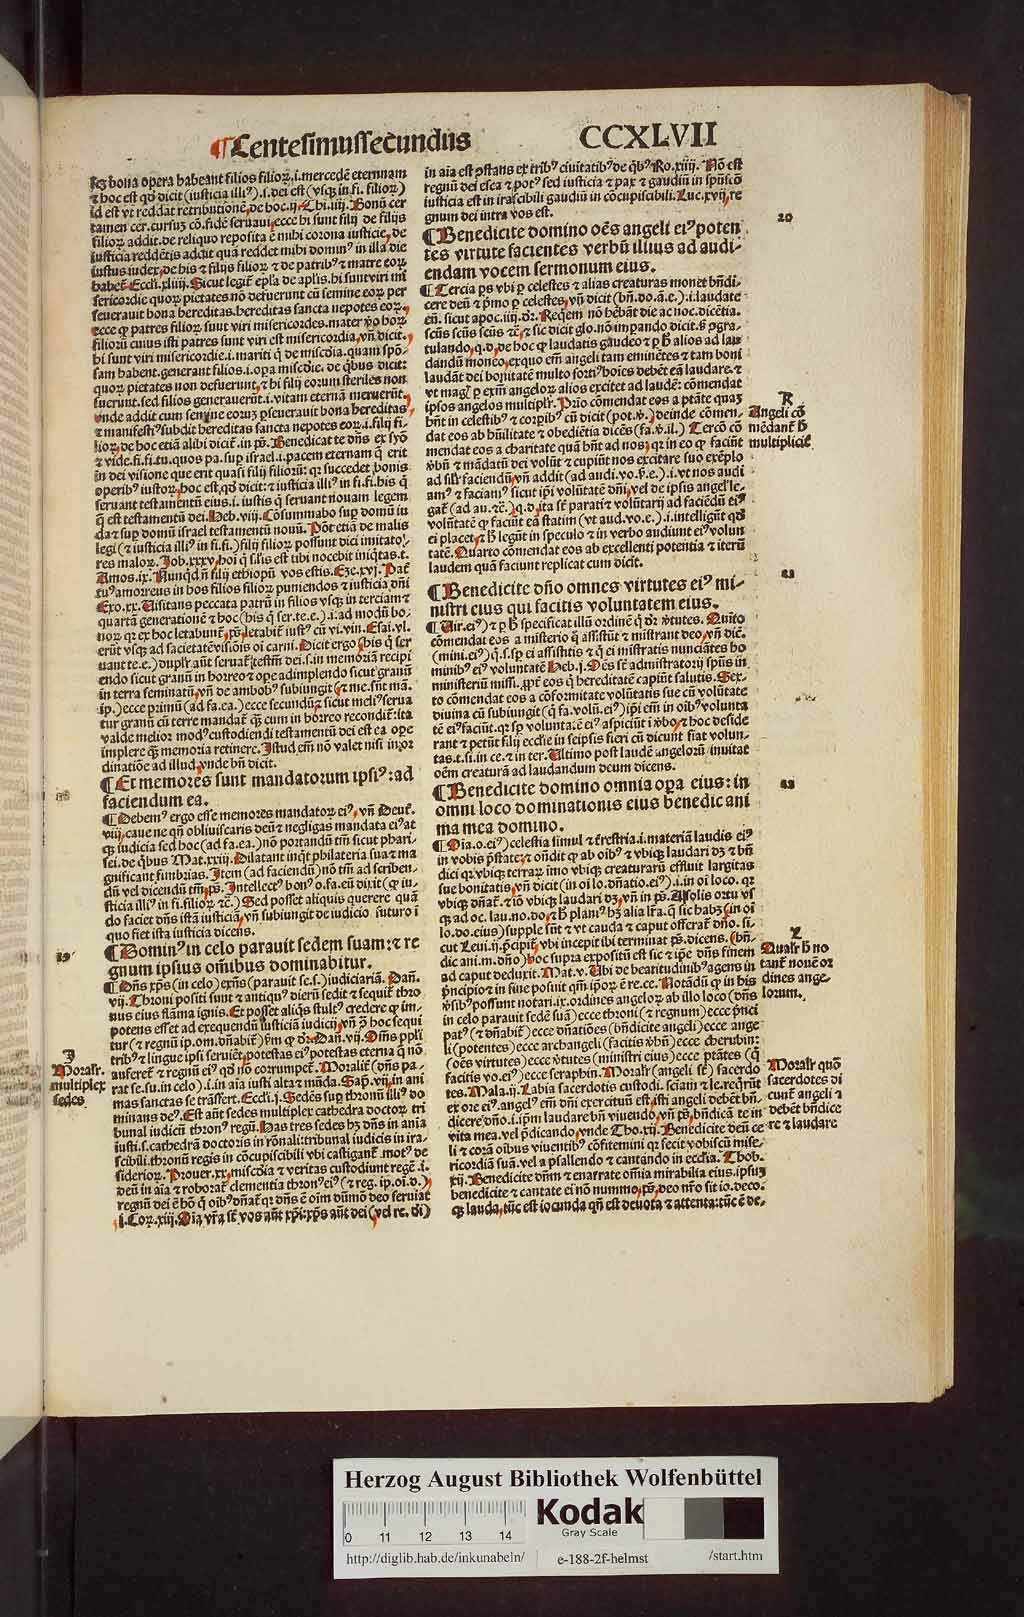 ¶Centesimussecundus
CCXLVII
sꝫ bona opera habeant filios filioꝝ.i.mercedē eternam
⁊ hoc est qđ dicit (iusticia illiꝰ).i.dei est (vsqꝫ in fi. filioꝝ)
id est vt reddat retributionē,de hoc.ij.Thi.iiij. Bonū cer
tamen cer.cursuꝫ cō.fidē seruaui,ecce hi sunt filij de filijs
filioꝝ addit.de reliquo reposita ē mihi corona iusticie,de
iusticia reddētis addit quā reddet mihi dominꝰ in illa die
iustus iudex,de his ⁊ filijs filioꝝ ⁊ de patribꝰ ⁊ matre eoꝝ
habeť Eccli.xliiij. Sicut legiť epła de apłis.hi sunt viri mi
sericordie quoꝝ pietates nō defuerunt cū semine eoꝝ per
seuerauit bona hereditas.hereditas sancta nepotes eoꝝ,
ecce ꝙ patres filioꝝ sunt viri misericordes.mater ꝟo hoꝝ
filiorū cuius isti patres sunt viri est misericordia,vn̄ dicit.
hi sunt viri misericordie.i.mariti q̄ de miscđia.quam spō-
sam habent.generant filios.i.opa miscđie.de q̄bus dicit:
quoꝝ pietates non defuerunt,⁊ hi filij eorum steriles non
fuerunt.sed filios generauerūt.i.vitam eternā meruerūt.
vnde addit cum semine eoruꝫ pseuerauit bona hereditas
⁊ manifestiꝰ subdit hereditas sancta nepotes eoꝝ.i.filij fi-
lioꝝ,de hoc etiā alibi diciť.in p̄s. Benedicat te dn̄s ex syō
⁊ vide.fi.fi.tu.quos pa.sup israel.i.pacem eternam q̄ erit
in dei visione que erit quasi filij filiorū: qꝛ succedet bonis
operibꝰ iustoꝝ,hoc est,qđ dicit:⁊ iusticia illiꝰ in fi.fi.his q̄
seruant testamentū eius.i.iustis q̄ seruant nouam legem
q̄ est testamentū dei.Heb.viij. Cōsummabo sup domū iu
da ⁊ sup domū israel testamentū nouū. Pōt etiā de malis
legi (⁊ iusticia illiꝰ in fi.fi.) filij filioꝝ possunt dici imitato
res maloꝝ. Job.xxxv,hoi q̄ silis est tibi nocebit iniq̄tas.t.
Amos.ix. Nunqđ n̄ filij ethiopū vos estis. Eze.xvj. Pať
tuꝰ amorreus in hos filios filioꝝ puniendos ⁊ iusticia dn̄i
Exo.xx. Uisitans peccata patrū in filios vsqꝫ in terciam ⁊
quartā generationē ⁊ hoc (his q̄ ser.te.e.).i.ad modū bo-
noꝝ qꝛ ex hoc letabunť,p̄s,letabiť iustꝰ cū vi.vin. Esai.vl.
erūt vsqꝫ ad sacietatē visiōis oi carni. Dicit ergo (his q̄ ser
uant te.e.) duplr aūt seruať testm̄ dei.s.in memoriā recipi
endo sicut granū in horreo ⁊ ope adimplendo sicut granū
in terra seminatū,vn̄ de ambobꝰ subiungit (⁊ me.sūt mā.
ip.) ecce primū (ad fa.ea.) ecce secunduꝫ sicut meliꝰ serua
tur granū cū terre mandať qꝫ cum in horreo recondiť:ita
valde melior modꝰ custodiendi testamentū dei est ea ope
implere qꝫ memoria retinere. Istud em̄ nō valet nisi in or
dinatiōe ad illud,vnde hn̄ dicit.
¶Et memores sunt mandatorum ipsiꝰ: ad
faciendum ea.
¶Debemꝰ ergo esse memores mandatoꝝ eiꝰ, vn̄ Deuť.
viij,caue ne qn̄ obliuiscaris deuꝫ ⁊ negligas mandata eiꝰ at
qꝫ iudicia sed hoc (ad fa.ea.) nō portandū tm̄ sicut phari-
sei.de q̄bus Mat.xxiij. Dilatant inq̄t philateria sua ⁊ ma
gnificant fimbrias. Item (ad faciendū) nō tm̄ ad scriben-
dū vel dicendū tm̄,p̄s. Intellectꝰ bonꝰ o.fa.eū dixit (⁊ iu-
sticia illiꝰ in fi.filioꝝ ⁊č) Sed posset aliquis querere quā
do faciet dn̄s istā iusticiā,vn̄ subiungit de iudicio futuro i
quo fiet ista iusticia dicens.
¶Dominꝰ in celo parauit sedem suam: ⁊ re
gnum ipsius om̄ibus dominabitur.
¶Dn̄s xp̄s (in celo) exn̄s (parauit se.s.) iudiciariā. Dań.
vij. Throni positi sunt ⁊ antiquꝰ dierū sedit ⁊ sequiť thro
nus eius flāma ignis. Et posset aliq̄s stultꝰ credere ꝙ im-
potens esset ad exequendū iusticiā iudicij,vn̄ ꝯ hoc sequi
tur (⁊ regnū ip.om.dn̄abiť) ꝟm ꝙ đꝛ.Dań.vij. Om̄s ppłi
tribꝰ ⁊ lingue ipsi seruiēt,potestas eiꝰ potestas eterna q̄ nō
aufereť ⁊ regnū eiꝰ qđ nō corrumpeť. Moraliť (dn̄s pa-
rat se.su.in celo).i.in aīa iusti alta ⁊ mūda. Sap.vij,in ani
mas sanctas se trāsfert. Eccli.j. Sedēs sup thronū illiꝰ do
minans deꝰ. Est aūt sedes multiplex cathedra doctoꝝ tri
bunal iudicū thronꝰ regū. Has tres sedes hꝫ dn̄s in anīa
iusti.s.cathedrā doctoris in rōnali:tribunal iudicis in ira-
scibili.thronū regis in cōcupiscibili vbi castiganť.motꝰ de
siderioꝝ. Prouer.xx,miscđia ⁊ veritas custodiunt regē.i.
deū in aīa ⁊ roborať clementia thronꝰ eiꝰ (⁊ reg.ip.oī.d.)
regnū dei ē hō q̄ oibꝰ dn̄ať qꝛ dn̄s ē oīm dum̄ō deo seruiat
j.Coꝝ.iij. Oīa vr̄a sť vos aūt xp̄i:xp̄s aūt dei (vel re. đi)
in aīa est p̄stans ex tribꝰ ciuitatibꝰ de q̄bꝰ Ro.xiiij. Nō est
regnū dei esca ⁊ potꝰ sed iusticia ⁊ pax ⁊ gaudiū in spūscō
iusticia est in irascibili gaudiū in cōcupiscibili. Luc.xvij,re
gnum dei intra vos est.
¶Benedicite domino oēs angeli eiꝰ poten
tes virtute facientes verbū illius ad audi-
endam vocem sermonum eius.
¶Tercia p̄s vbi p celestes ⁊ alias creaturas monet bn̄di-
cere deū ⁊ p̄mo p celestes,vn̄ dicit (bn̄.do.ā.e.).i.laudate
eū.sicut apoc.iiij.đꝛ. Req̄em nō hēbāt die ac noc.dicētia.
scūs scūs scūs ⁊č,⁊ sic dicit glo.nō impando dicit.s; p̄gra-
tulando,q.d,de hoc ꝙ laudatis gaudeo ⁊ p ħ alios ad lau
dandū moneo,exquo em̄ angeli tam eminētes ⁊ tam boni
laudāt dei bonitatē multo fortiꝰ hoīes debēt eā laudare.⁊
vt magꝭ p exm̄ angeloꝝ alios excitet ad laudē: cōmendat
ipsos angelos multiplr̄. Prīo cōmendat eos a ptāte quaꝫ
hn̄t in celestibꝰ ⁊ corpībꝰ cū dicit (pot.ꝟ.) deinde cōmen-
dat eos ab hūilitate ⁊ obediētia dicēs (fa.ꝟ.il.) Tercō cō
mendat eos a charitate quā hn̄t ad nos,qꝛ in eo ꝙ faciūt
ꝟbū ⁊ mādatū dei volūt ⁊ cupiūt nos excitare suo exēplo
ad silr faciendū,vn̄ addit (ad audi.vo.ꝟ.e.).i.vt nos audi
amꝰ ⁊ faciamꝰ sicut ip̄i volūtatē dn̄i,vel de ipsis angeꝉ le-
gať (ad au.⁊č.) q.d,ita sť parati ⁊ volūtarij ad faciēdū eiꝰ
volūtatē ꝙ faciūt eā statim (vt aud.vo.e.).i.intelligūt qđ
ei placet,⁊ ħ legūt in speculo ⁊ in verbo audiunt eiꝰ volun
tatē. Quarto cōmendat eos ab excellenti potentia ⁊ iterū
laudem quā faciunt replicat cum dicit.
¶Benedicite dn̄o omnes virtutes eiꝰ mi-
nistri eius qui facitis voluntatem eius.
¶(Uir.eiꝰ) ⁊ p ħ specificat illū ordinē q̄ đꝛ ꝟtutes. Quīto
cōmendat eos a misterio q̄ assistūt ⁊ mīstrant deo,vn̄ dič.
(mini.eiꝰ) q̄.s.sp ei assistitis ⁊ q̄ ei ministratis nunciātes ho
minibꝰ eiꝰ voluntatē Heb.j. Oēs sť admīstratorij spūs in
ministeriū missi. ꝓpť eos q̄ hereditatē capiūt salutis. Sex-
to cōmendat eos a cōformitate volūtatis sue cū volūtate
diuina cū subiungit (q̄ fa.volū.eiꝰ) ip̄i em̄ in oibꝰ volunta
tē eiꝰ faciūt.qꝛ sp voluntatē eiꝰ aspiciūt ī ꝟbo,⁊ hoc deside
rant ⁊ petūt filij ecclīe in seipsis fieri cū dicunt fiat volun-
tas.t.si.in ce.⁊ in ter. Ultimo post laudē angeloꝝ inuitat
oēm creaturā ad laudandum deum dicens.
¶Benedicite domino omnia opa eius: in
omni loco dominationis eius benedic ani
ma mea domino.
¶(Oīa.o.eiꝰ) celestia simul ⁊ trestria.i.materiā laudis eiꝰ
in vobis p̄state,⁊ on̄dit ꝙ ab oibꝰ ⁊ vbiqꝫ laudari dꝫ ⁊ bn̄
dici qꝛ vbiqꝫ terraꝝ imo vbiqꝫ creaturarū effluit largitas
sue bonitatis,vn̄ dicit (in oi lo.dn̄atio.eiꝰ).i.in oī loco.qꝛ
vbiqꝫ dn̄ať.⁊ iō vbiqꝫ laudari dꝫ,vn̄ in p̄s. A solis ortu vs
qꝫ ad oc.lau.no.do,⁊ ħ planiꝰ hꝫ alia lr̄a.q̄ sic habꝫ (in oī
lo.do.eius) supple sūt ⁊ vt cauda ⁊ caput offerať dn̄o.si-
cut Leui.ij.p̄cipiť,vbi incepit ibi terminat p̄s.dicens. (bn̄-
dic ani.m.dn̄o) hoc supra expositū est sic ⁊ ip̄e dn̄s finem
ad caput deduxit. Mat.v. Ubi de beatitudinibꝰ agens in
p̄ncipio ⁊ in fine posuit qm̄ ip̄oꝝ ē re.ce. Notādū ꝙ in his
ꝟsibꝰ possunt notari.ix.ordines angeloꝝ ab illo loco (dn̄s
in celo parauit sedē suā) ecce throni (⁊ regnum) ecce p̄nci
patꝰ (⁊ dn̄abiť) ecce dn̄atiōes (bn̄dicite angeli) ecce ange
li (potentes) ecce archangeli (facitis ꝟbū) ecce cherubin:
(oēs virtutes) ecce ꝟtutes (ministri eius) ecce ptātes (q̄
facitis vo.eiꝰ) ecce seraphin. Moralr̄ (angeli sť) sacerdo
tes. Mala.ij. Labia sacerdotis custodi. sciam ⁊ le.req̄rūt
ex ore eiꝰ.angelꝰ em̄ dn̄i exercituū est,isti angeli debēt bn̄-
dicere dn̄o.i.ip̄m laudare bn̄ viuendo,vn̄ p̄s,bn̄dicā te in
vita mea.vel p̄dicando,vnde Tho.xij. Benedicite deū ce
li ⁊ corā oibus viuentibꝰ cōfitemini qꝛ fecit vobiscū mise-
ricordiā suā.vel a psallendo ⁊ cantando in ecclīa. Thob.
xij. Benedicite dn̄m ⁊ enarrate om̄ia mirabilia eius.ipsuꝫ
benedicite ⁊ cantate ei nō nummo,p̄s,deo nr̄o sit io.deco.
qꝫ lauda,tūc est iocunda qn̄ est deuota ⁊ attenta:tūc ē de-
20
R
Angeli cō
mēdanť ħ
multiplicit́
21
22
L
Qualr̄ ħ no
tanť nouē or
dines ange-
lorum.
Moralr̄ quō
sacerdotes di
cunť angeli ⁊
debēt bn̄dice
re ⁊ laudare
18
19
J
Moralr̄.
multiplex
sedes
Herzog August Bibliothek Wolfenbüttel
Kodak
Gray Scale
0 11 12 13 14
http://diglib.hab.de/inkunabeln/
e-188-2f-helmst
/start.htm